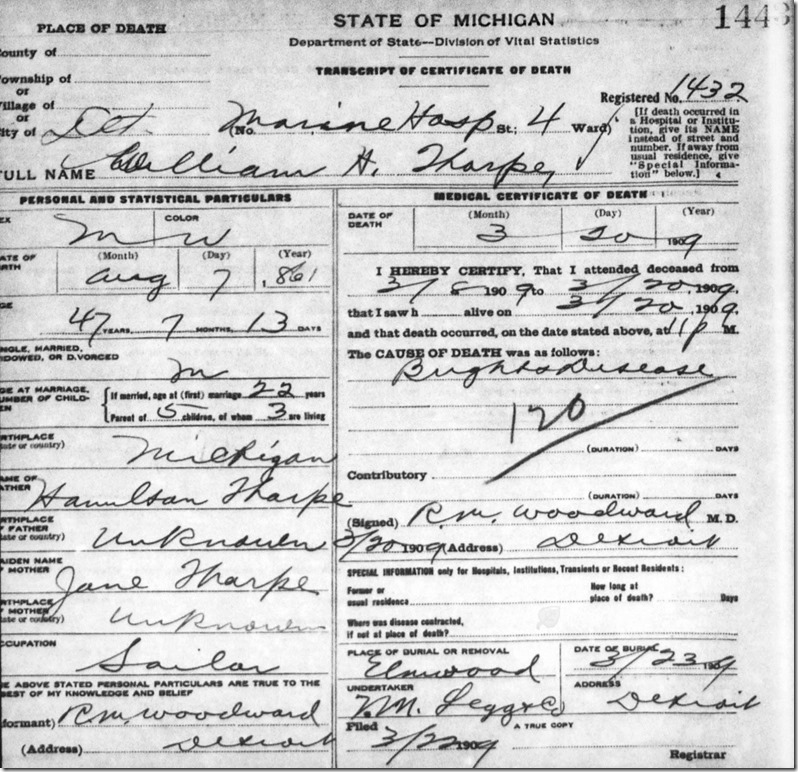 PLACE OF DEATH
STATE OF MICHIGAN
1443
Department of State—Division of Vital Statistics
County of
TRANSCRIPT OF CERTIFICATE OF DEATH
Township of
or
Village of
or
Registered No. 1432
City of Det. (No. Marine Hosp St.; 4 Ward)
[If death occurred in
a Hospital or Institu-
tion, give its NAME
instead of street and
number. If away from
usual residence, give
"Special Informa-
tion" below.]
FULL NAME William H. Tharpe
PERSONAL AND STATISTICAL PARTICULARS
SEX
COLOR
M W
DATE OF
BIRTH
(Month) (Day) (Year)
Aug 7 1861
AGE
47 YEARS, 7 MONTHS, 13 DAYS
SINGLE, MARRIED,
WIDOWED, OR D.VORCED
M
AGE AT MARRIAGE,
NUMBER OF CHILD-
REN
If married, age at (first) marriage 22 years
Parent of 5 children, of whom 3 are living
BIRTHPLACE
(State or country)
Michigan
NAME OF
FATHER
Hamilton Tharpe
BIRTHPLACE
OF FATHER
(State or country)
Unknown
MAIDEN NAME
OF MOTHER
Jane Tharpe
BIRTHPLACE
OF MOTHER
(State or country)
Unknown
OCCUPATION
Sailor
THE ABOVE STATED PERSONAL PARTICULARS ARE TRUE TO THE
BEST OF MY KNOWLEDGE AND BELIEF
(Informant) R.M. Woodward
(Address) Detroit
MEDICAL CERTIFICATE OF DEATH
DATE OF
DEATH
(Month) (Day) (Year)
3 20 1909
I HEREBY CERTIFY, That I attended deceased from
3/8 1909 to 3/20, 1909,
that I saw h alive on 3/20, 1909,
and that death occurred, on the date stated above, at 11 P M.
The CAUSE OF DEATH was as follows:
Brights Disease
120
(DURATION) DAYS
Contributory
(DURATION) DAYS
(Signed) R.M. Woodward M. D.
3/20 1909 (Address) Detroit
SPECIAL INFORMATION only for Hospitals, Institutions, Transients or Recent Residents:
Former or
usual residence
How long at
place of death? Days
Where was disease contracted,
if not at place of death?
PLACE OF BURIAL OR REMOVAL
Elmwood
DATE OF BURIAL
3/23 1909
UNDERTAKER
V.M. Legg & Co
ADDRESS
Detroit
Filed 3/22 1909
A TRUE COPY
Registrar